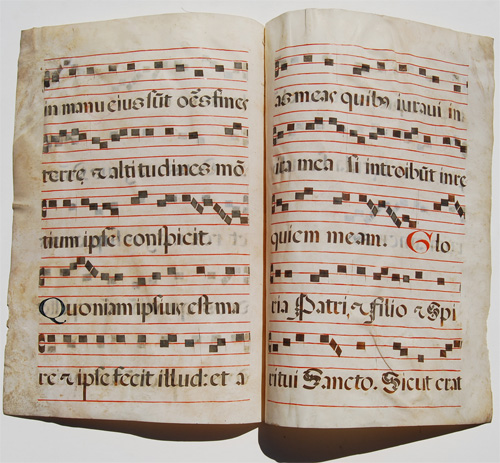 in manu eius sūt oēs fines
terrę et altitudines mō
tium ipse conspicit.
Quoniam ipsius est ma
re et ipse fecit illud: et a
as meas quibᵒ iuraui in
ira mea si introibūt in re
quiem meam. Glo
ria Patri, et filio et Spi
ritui Sancto. Sicut erat